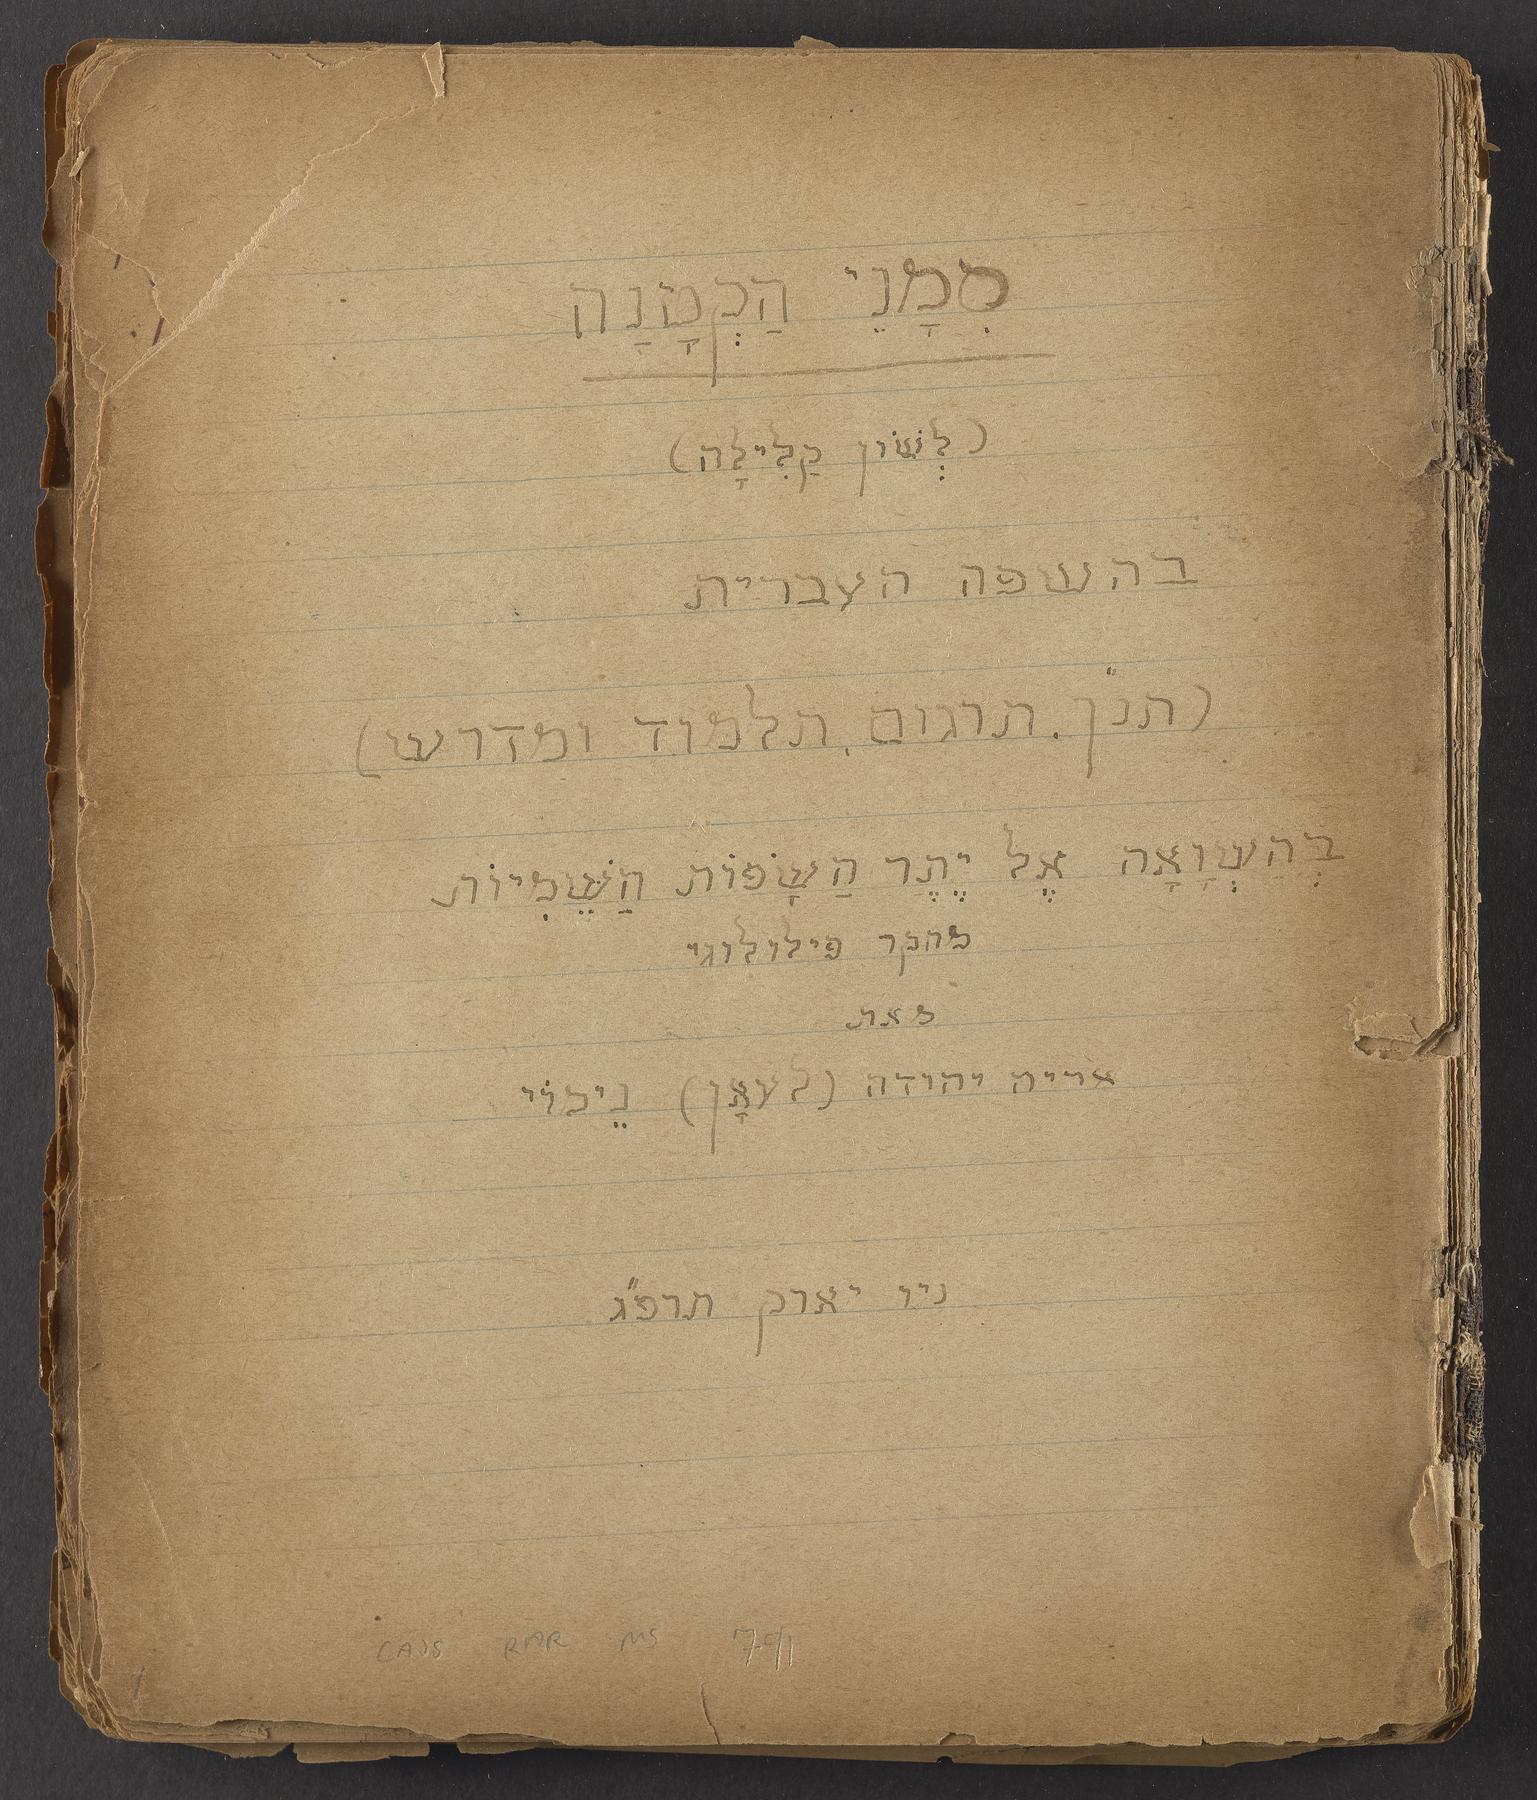 סִמָנֵי הַקְטָנָה
(לְשׁוֹן קַלִילָה)
בהשפה העברית
(תנ"ך. תרגום. תלמוד ומדרש)
בְּהַשְׁוָאָה אֶל יֶתֶר הַשָׂפוֹת הַשֵׁמִיוֹת
מחקר פילולוגי
מאת
אריה יהודה (לעאָן) נֵימוֹי
ניו יארק תרפ"ג
CAJS RAR MS